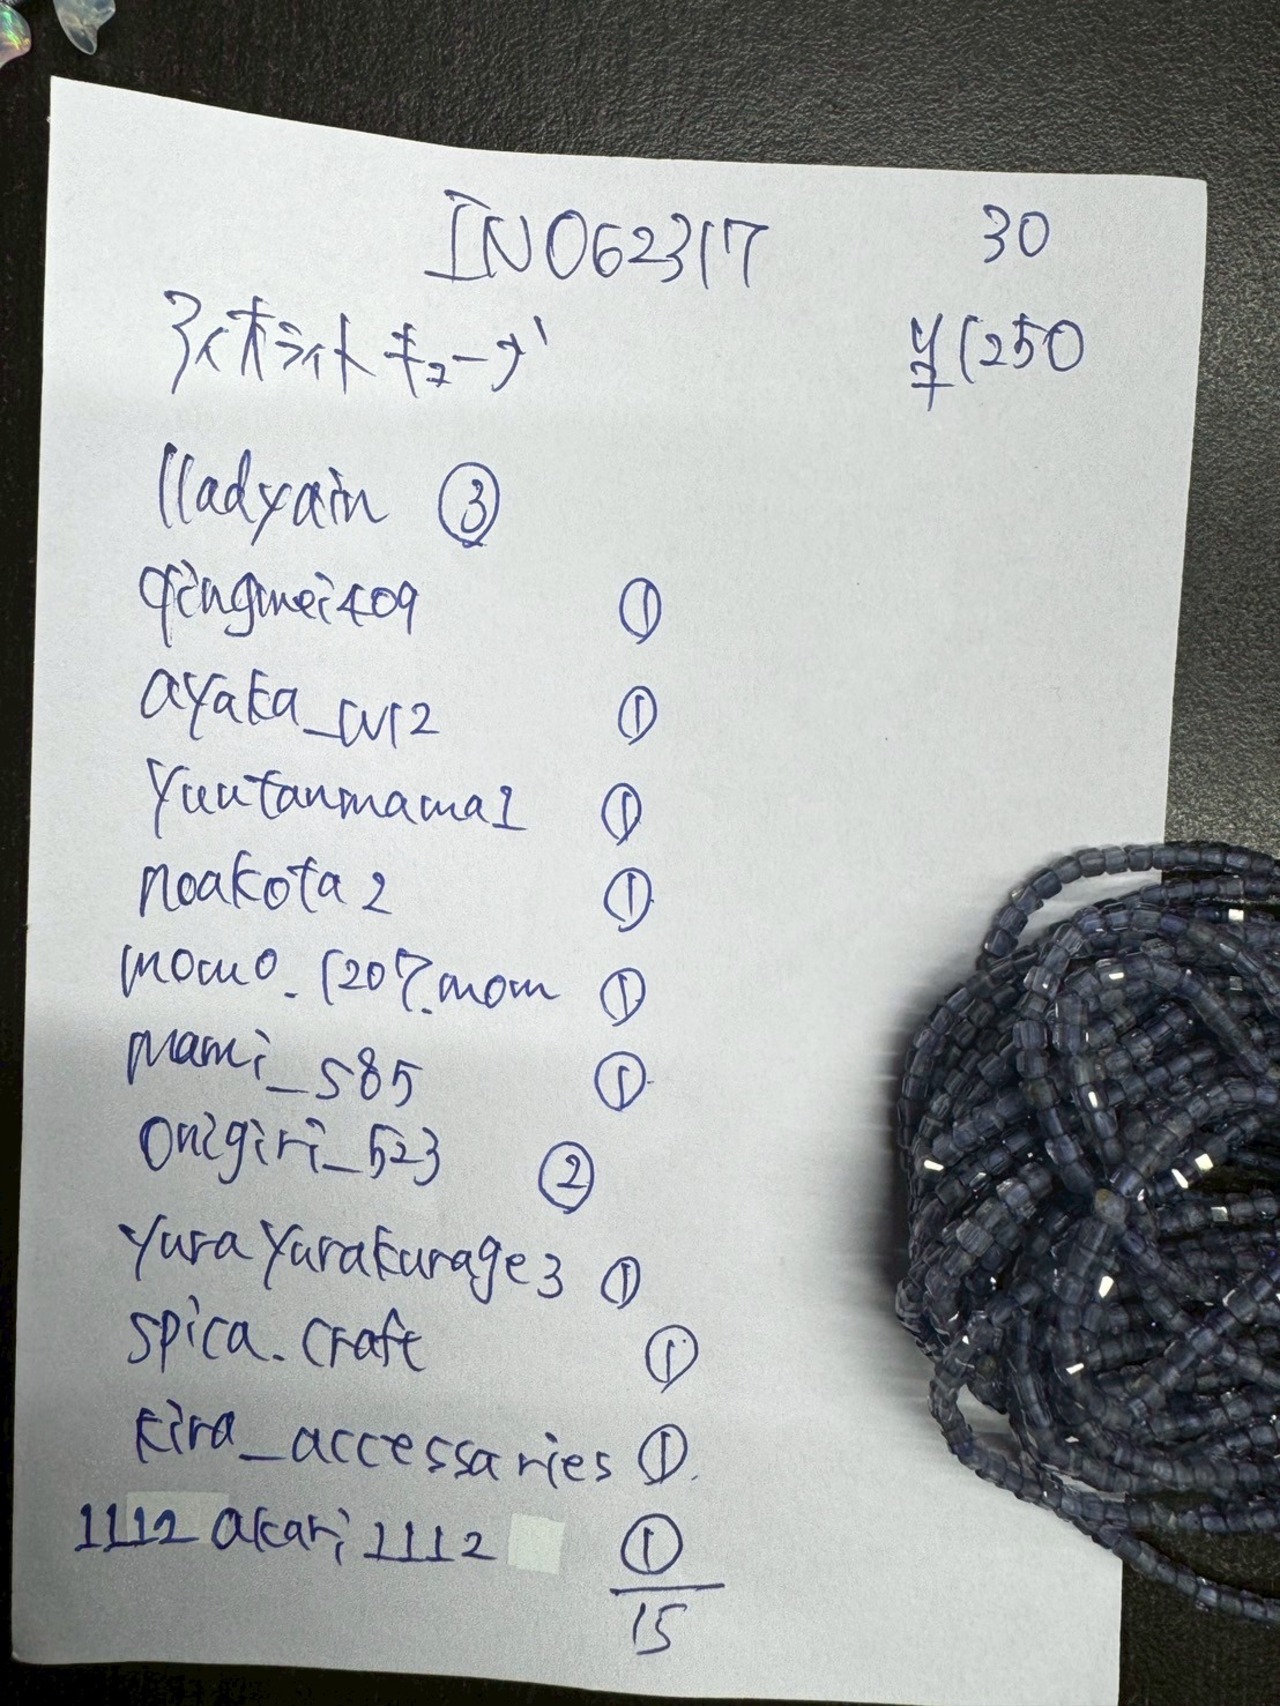 IN062317 30
アイオライトキューブ ¥1250
lladyain ③
qingmei409 ①
ayaka_cv12 ①
yuutanmama1 ①
noakota2 ①
momo.1207.mom ①
mami_s85 ①
onigiri_523 ②
yurayurakurage3 ①
spica.craft ①
kira_accessaries ①
1112akari1112 ①
15